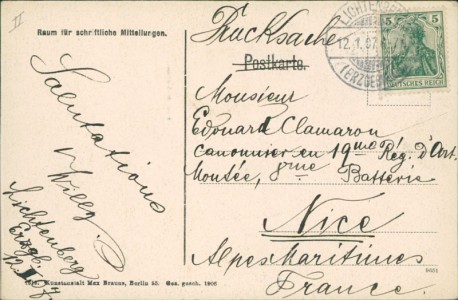 II
Raum für schriftliche Mitteilungen.
Drucksache
Postkarte.
LICHTENBERG
12.1.07
(ERZGEB
5 5
DEUTSCHES REICH
Monsieur
Edouard Clamaron
canonnier en 19me Rég. d'Art.
Montée, 8me Batterie
Nice
Alpes Maritimes
France.
Salutations
Lichtenberg
Erzgb.
12. I. 07
Kunstanstalt Max Brauns, Berlin 50. Ges. gesch. 1906